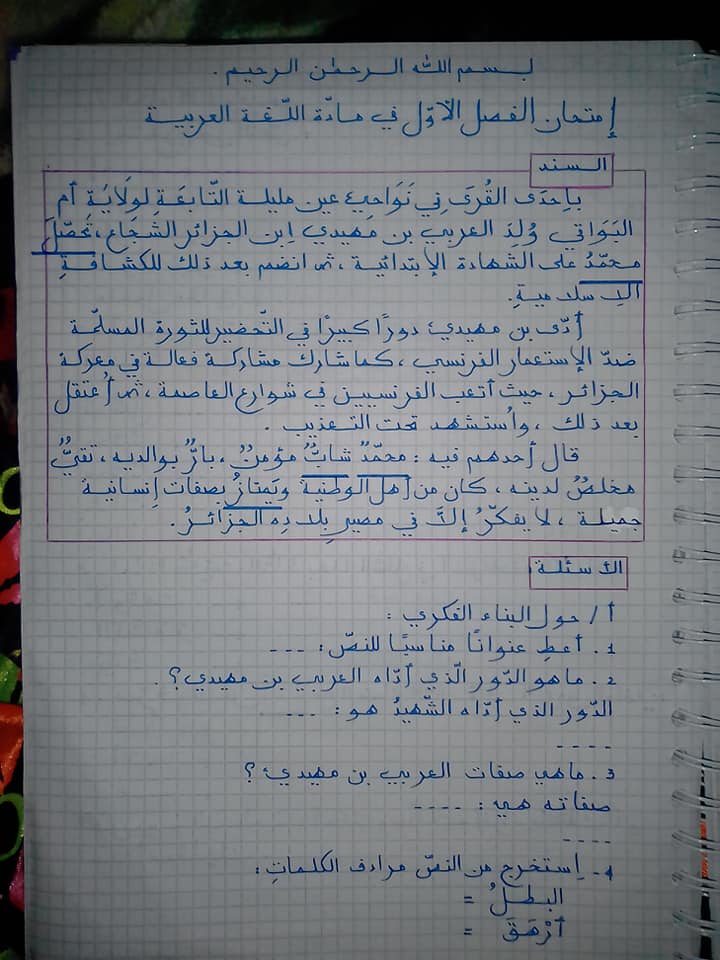 بسم الله الرحمٰن الرحيم .
إمتحان الفصل الأوّل في مادّة اللّغة العربية
السند
بإحدَى القُرَى فِي نَوَاحِي عين مليلة التّابعَةِ لولَايَةِ أم
البَوَاقي وُلِدَ العربي بن مَهيدي اِبن الجزائر الشّجَاع، تحصّلَ
محمّدُ على الشهادة الإبتدائية ، ثم انضم بعد ذلك للكشافةِ
الإسلاميةِ.
أدّى بن مهيدي دورًا كبيرًا في التّحضير للثورة المسلّحة
ضدّ الإستعمار الفرنسي ، كما شارك مشاركة فعالة في معركة
الجزائر ، حيث أتعب الفرنسيين في شوارع العاصمة ، ثم اُعتقل
بعد ذلك ، واُستشهد تحت التعذيب .
قال أحدهم فيه : محمّدٌ شابٌّ مؤمنٌ ، بارٌّ بوالديه ، تقيٌّ
مخلصٌ لدينه ، كان من أهل الوطنية ويَمتازُ بصفات إنسانية
جميلة ، لا يفكّرُ إلاَّ في مصيرِ بلادِهِ الجزائرُ.
الأسئلة
أ / حول البناء الفكري :
1. أعطِ عنوانًا مناسبًا للنصّ : ---
2. ما هو الدّور الّذي أدّاه العربي بن مهيدي ؟ .
الدّور الذي أدّاه الشّهيدُ هو : ---
----
3. ماهي صفات العربي بن مهيدي ؟
صفاته هي : ----
----
4- اِستخرج من النصّ مرادف الكلماتِ :
البطلُ =
أرْهَقَ =